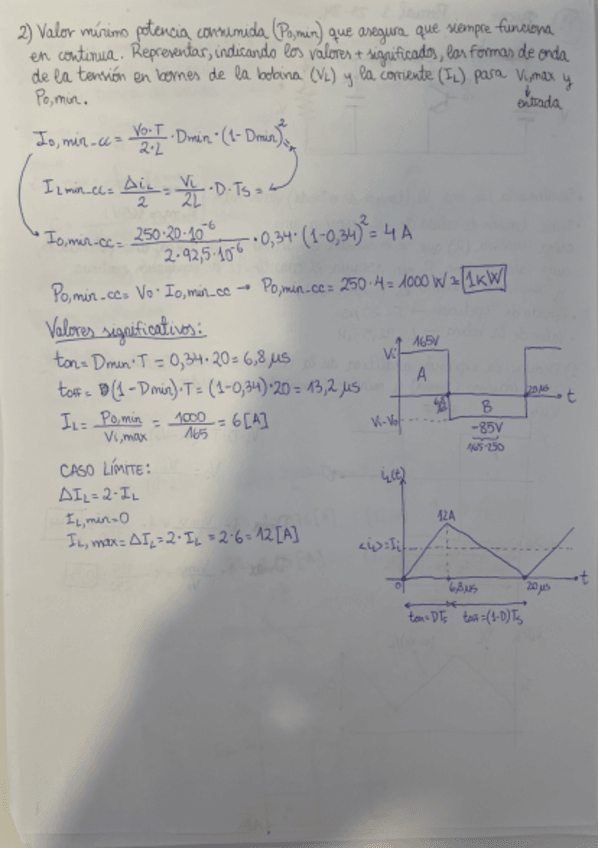 2) Valor mínimo potencia consumida (Po,min) que asegura que siempre funciona
en continua. Representar, indicando los valores + significados, las formas de onda
de la tensión en bornes de la bobina (VL) y la corriente (IL) para Vi,max y
Po,min.
↓
entrada
Io,min_cc = Vo·T / 2·L · Dmin · (1-Dmin)²
ILmin_cc = ΔiL / 2 = Vi / 2L · D · Ts =
Io,min_cc = 250·20·10⁻⁶ / 2·92,5·10⁻⁶ · 0,34 · (1-0,34)² = 4 A
Po,min_cc = Vo · Io,min_cc → Po,min_cc = 250·4 = 1000 W ≈ 1kW
Valores significativos:
ton = Dmin · T = 0,34 · 20 = 6,8 μs
toff = (1-Dmin) · T = (1-0,34) · 20 = 13,2 μs
IL = Po,min / Vi,max = 1000 / 165 = 6 [A]
CASO LÍMITE:
ΔIL = 2 · IL
IL,min = 0
IL,max = ΔIL = 2 · IL = 2 · 6 = 12 [A]
165V
Vi
A
20μs
t
B
Vi-Vo
-85V
165-250
iL(t)
12A
<iL>=Ii
0
6,8μs
20μs
t
ton=DTs
toff=(1-D)Ts